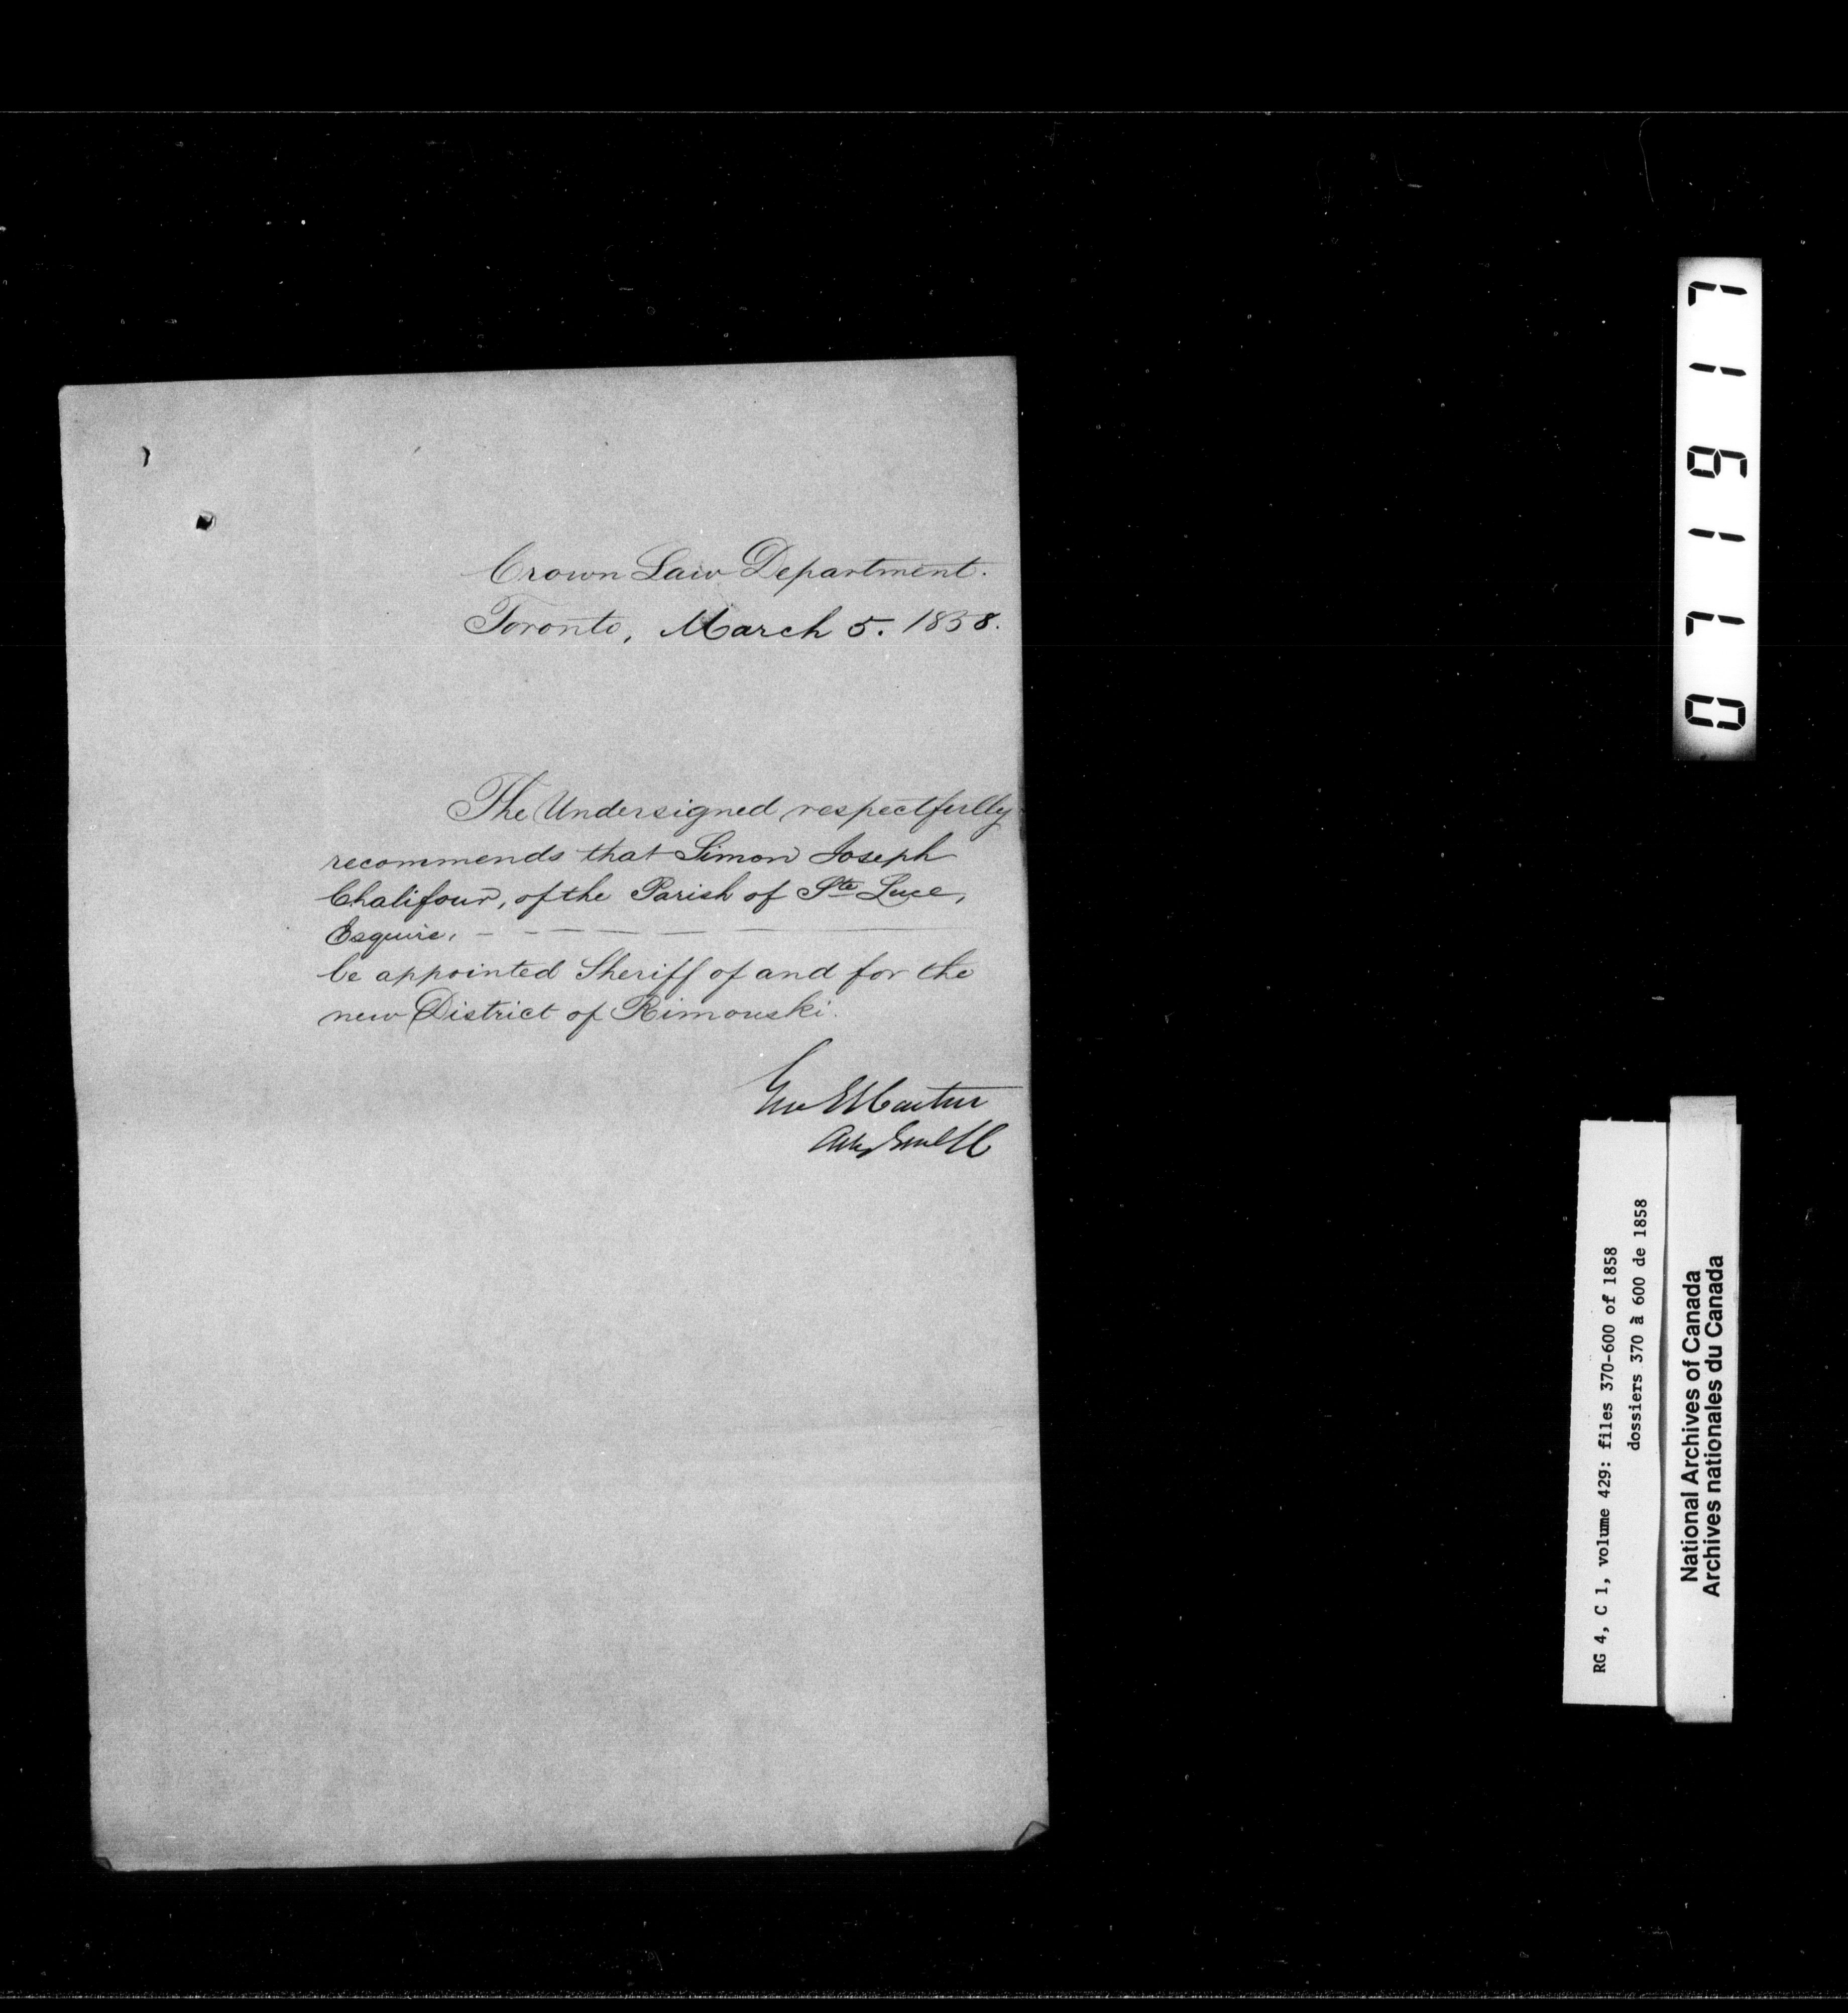 Crown Law Department.
Toronto, March 5. 1858.
The Undersigned respectfully
recommends that Simon Joseph
Chalifour, of the Parish of Ste Luce,
Esquire,
be appointed Sheriff of and for the
new District of Rimouski.
Geo E Cartier
Atty Genl LC
071917
RG 4, C 1, volume 429: files 370-600 of 1858
dossiers 370 à 600 de 1858
National Archives of Canada
Archives nationales du Canada